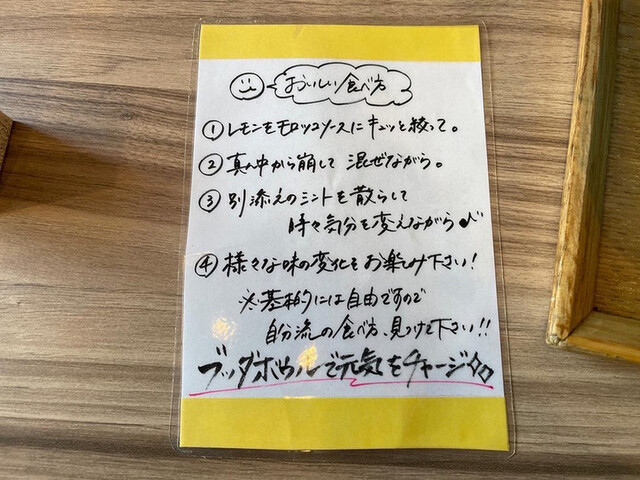 おいしい食べ方
① レモンをモロッコソースにキュッと絞って。
② 真ん中から崩して 混ぜながら。
③ 別添えのミントを散らして
時々気分を変えながら♪
④ 様々な味の変化をお楽しみ下さい!
※基本的には自由ですので
自分流の食べ方、見つけて下さい!!
ブッダボウルで元気をチャージ☆☆